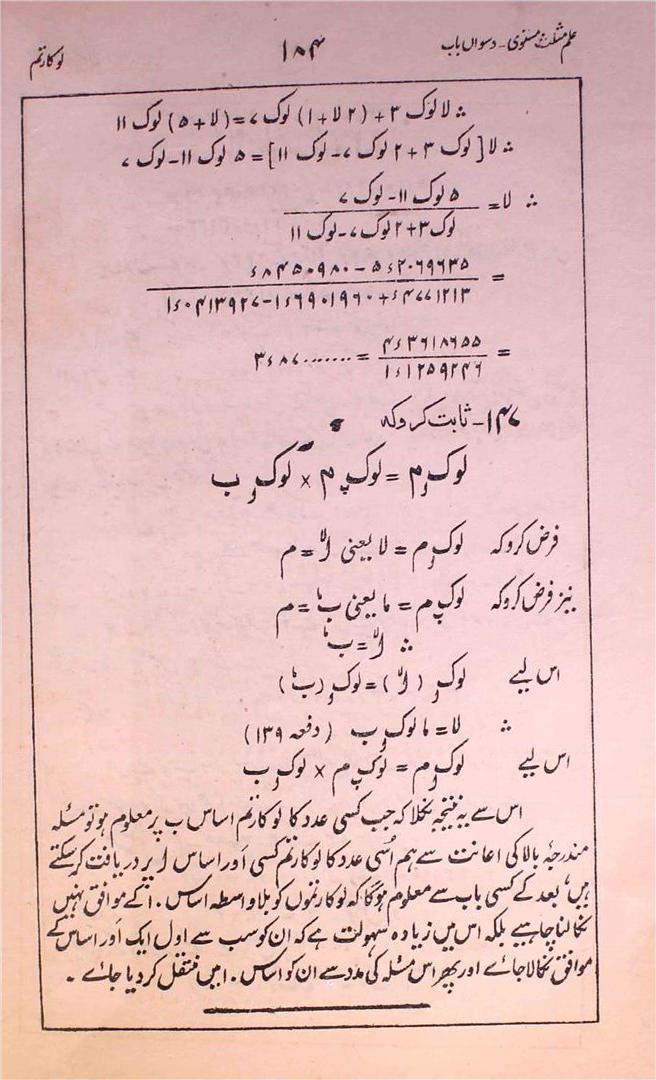 علم مثلث مستوی۔ دسواں باب ۱۸۴ لوکارتم
∴ لا لوک ۳ + (۲ لا + ۱) لوک ۷ = (لا + ۵) لوک ۱۱
∴ لا [لوک ۳ + ۲ لوک ۷ - لوک ۱۱] = ۵ لوک ۱۱ - لوک ۷
∴ لا = (۵ لوک ۱۱ - لوک ۷) / (لوک ۳ + ۲ لوک ۷ - لوک ۱۱)
= (۵٫۲۰۶۹۶۳۵ - ٫۸۴۵۰۹۸۰) / (٫۴۷۷۱۲۱۳ + ۱٫۶۹۰۱۹۶۰ - ۱٫۰۴۱۳۹۲۷)
= ۴٫۳۶۱۸۶۵۵ / ۱٫۱۲۵۹۲۴۶ = ۳٫۸۷.......
۱۴۷۔ ثابت کرو کہ
لوک_ا م = لوک_ب م × لوک_ا ب
فرض کرو کہ لوک_ا م = لا یعنی ا^لا = م
نیز فرض کرو کہ لوک_ب م = ما یعنی ب^ما = م
∴ ا^لا = ب^ما
اس لیے لوک_ا (ا^لا) = لوک_ا (ب^ما)
∴ لا = ما لوک_ا ب (دفعہ ۱۳۹)
اس لیے لوک_ا م = لوک_ب م × لوک_ا ب
اس سے یہ نتیجہ نکلا کہ جب کسی عدد کا لوکارتم اساس ب پر معلوم ہو تو مسئلہ
مندرجۂ بالا کی اعانت سے ہم اُسی عدد کا لوکارتم کسی اَور اساس ا پر دریافت کر سکتے
ہیں، بعد کے کسی باب سے معلوم ہوگا کہ لوکارتموں کو بلا واسطہ اساس ۱۰ کے موافق نہیں
نکالنا چاہیے بلکہ اس میں زیادہ سہولت ہے کہ ان کو سب سے اول ایک اَور اساس کے
موافق نکالا جائے اور پھر اس مسئلہ کی مدد سے ان کو اساس ۱۰ میں منتقل کر دیا جائے۔